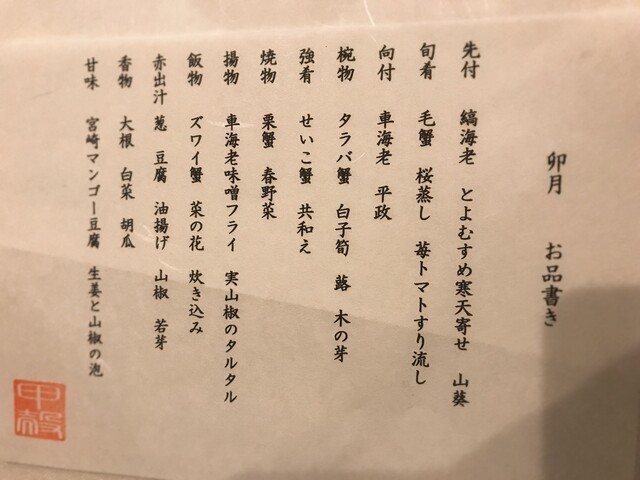 卯月　お品書き
先付　縞海老　とよむすめ寒天寄せ　山葵
旬肴　毛蟹　桜蒸し　苺トマトすり流し
向付　車海老　平政
椀物　タラバ蟹　白子筍　蕗　木の芽
強肴　せいこ蟹　共和え
焼物　栗蟹　春野菜
揚物　車海老味噌フライ　実山椒のタルタル
飯物　ズワイ蟹　菜の花　炊き込み
赤出汁　葱　豆腐　油揚げ　山椒　若芽
香物　大根　白菜　胡瓜
甘味　宮崎マンゴー豆腐　生姜と山椒の泡
甲殻